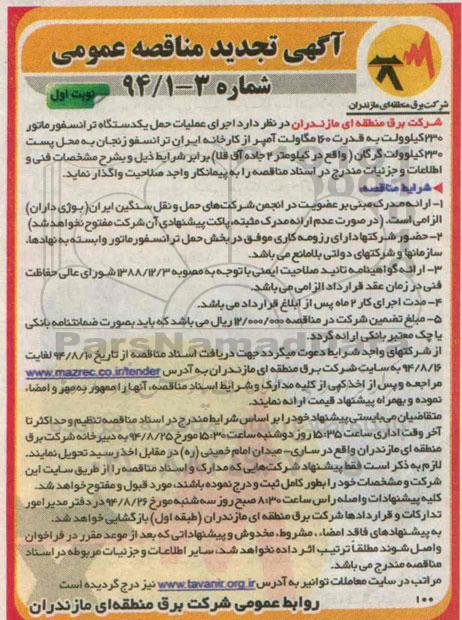 آگهی تجدید مناقصه عمومی
شماره ۳-۹۴/۱
نوبت اول
شرکت برق منطقه ای مازندران
شرکت برق منطقه ای مازندران در نظر دارد اجرای عملیات حمل یکدستگاه ترانسفورماتور
۲۳۰کیلوولت به قدرت ۱۶۰ مگاولت آمپر از کارخانه ایران ترانسفو زنجان به محل پست
۲۳۰کیلوولت گرگان (واقع در کیلومتر ۲ جاده آق قلا) برابر شرایط ذیل و بشرح مشخصات فنی و
اطلاعات و جزئیات مندرج در اسناد مناقصه را به پیمانکار واجد صلاحیت واگذار نماید.
شرایط مناقصه:
۱- ارائه مدرک مبنی بر عضویت در انجمن شرکت‌های حمل و نقل سنگین ایران( بوژی داران)
الزامی است. (در صورت عدم ارائه مدرک مثبته، پاکت پیشنهادی آن شرکت مفتوح نخواهد شد)
۲- حضور شرکتها دارای رزومه کاری موفق در بخش حمل ترانسفورماتور وابسته به نهادها،
سازمانها و شرکتهای دولتی بلامانع می باشد.
۳- ارائه گواهینامه تائید صلاحیت ایمنی با توجه به مصوبه ۱۳۸۸/۱۲/۳ شورای عالی حفاظت
فنی در زمان عقد قرارداد الزامی می باشد.
۴- مدت اجرای کار ۲ ماه پس از ابلاغ قرارداد می باشد.
۵- مبلغ تضمین شرکت در مناقصه ۱۲/۰۰۰/۰۰۰ ریال می باشد که باید بصورت ضمانتنامه بانکی
یا چک معتبر بانکی ارائه گردد.
از شرکتهای واجد شرایط دعوت میگردد جهت دریافت اسناد مناقصه از تاریخ ۹۴/۸/۱۰ لغایت
۹۴/۸/۱۶ به سایت شرکت برق منطقه ای مازندران به آدرس www.mazrec.co.ir/tender
مراجعه و پس از اخذ کپی از کلیه مدارک و شرایط اسناد مناقصه، آنها را ممهور به مهر و امضاء
نموده و بهمراه پیشنهاد قیمت ارائه نمایند.
متقاضیان می بایستی پیشنهاد خود را بر اساس شرایط مندرج در اسناد مناقصه تنظیم و حداکثر تا
آخر وقت اداری ساعت ۱۵:۳۵ روز دوشنبه ساعت ۱۵:۳۰ مورخ ۹۴/۸/۲۵ به دبیرخانه شرکت برق
منطقه ای مازندران واقع در ساری- میدان امام خمینی (ره) در مقابل اخذ رسید تحویل نمایند.
لازم به ذکر است فقط پیشنهاد شرکت‌هایی که مدارک و اسناد مناقصه را از طریق سایت این
شرکت و مشخصات خود را بطور کامل ثبت و درج نموده باشند، مورد قبول و مفتوح خواهد شد.
کلیه پیشنهادات واصله راس ساعت ۸:۳۰ صبح روز سه شنبه مورخ ۹۴/۸/۲۶ در دفتر مدیر امور
تدارکات و قراردادها شرکت برق منطقه ای مازندران (طبقه اول) بازگشایی خواهد شد.
به پیشنهادهای فاقد امضاء، مشروط، مخدوش و پیشنهاداتی که بعد از موعد مقرر در فراخوان
واصل شوند مطلقا ترتیب اثر داده نخواهد شد، سایر اطلاعات و جزئیات مربوطه در اسناد
مناقصه مندرج می باشد.
مراتب در سایت معاملات توانیر به آدرس www.tavanir.org.ir نیز درج گردیده است
۱۰۰
روابط عمومی شرکت برق منطقه‌ای مازندران
ParsNamad